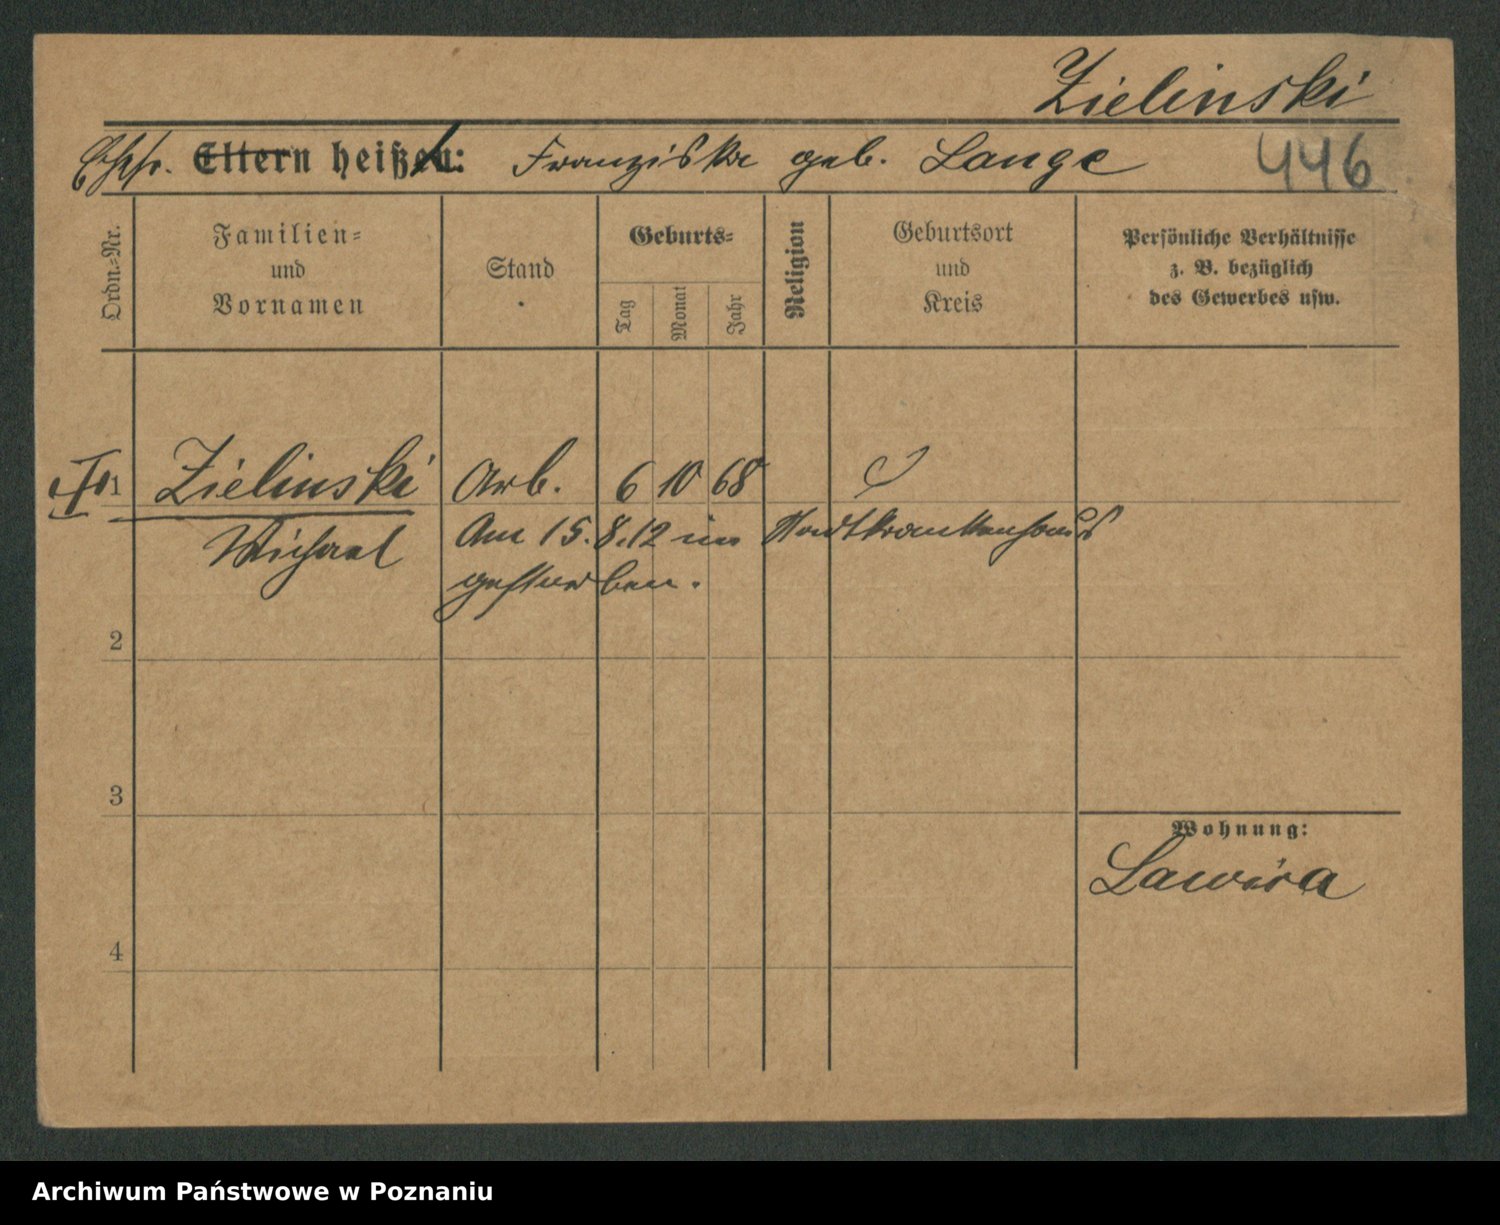 Zielinski
Ehefr. Eltern heißen: Franziska geb. Lange 446
Ordn.-Nr.
Familien-
und
Vornamen
Stand
Geburts-
Tag
Monat
Jahr
Religion
Geburtsort
und
Kreis
Persönliche Verhältnisse
z. B. bezüglich
des Gewerbes usw.
1 Zielinski Arb. 6 10 68
Michael Am 15.8.12 im Stadtkrankenhaus
gestorben.
2
3
Wohnung:
Lawica
4
Archiwum Państwowe w Poznaniu